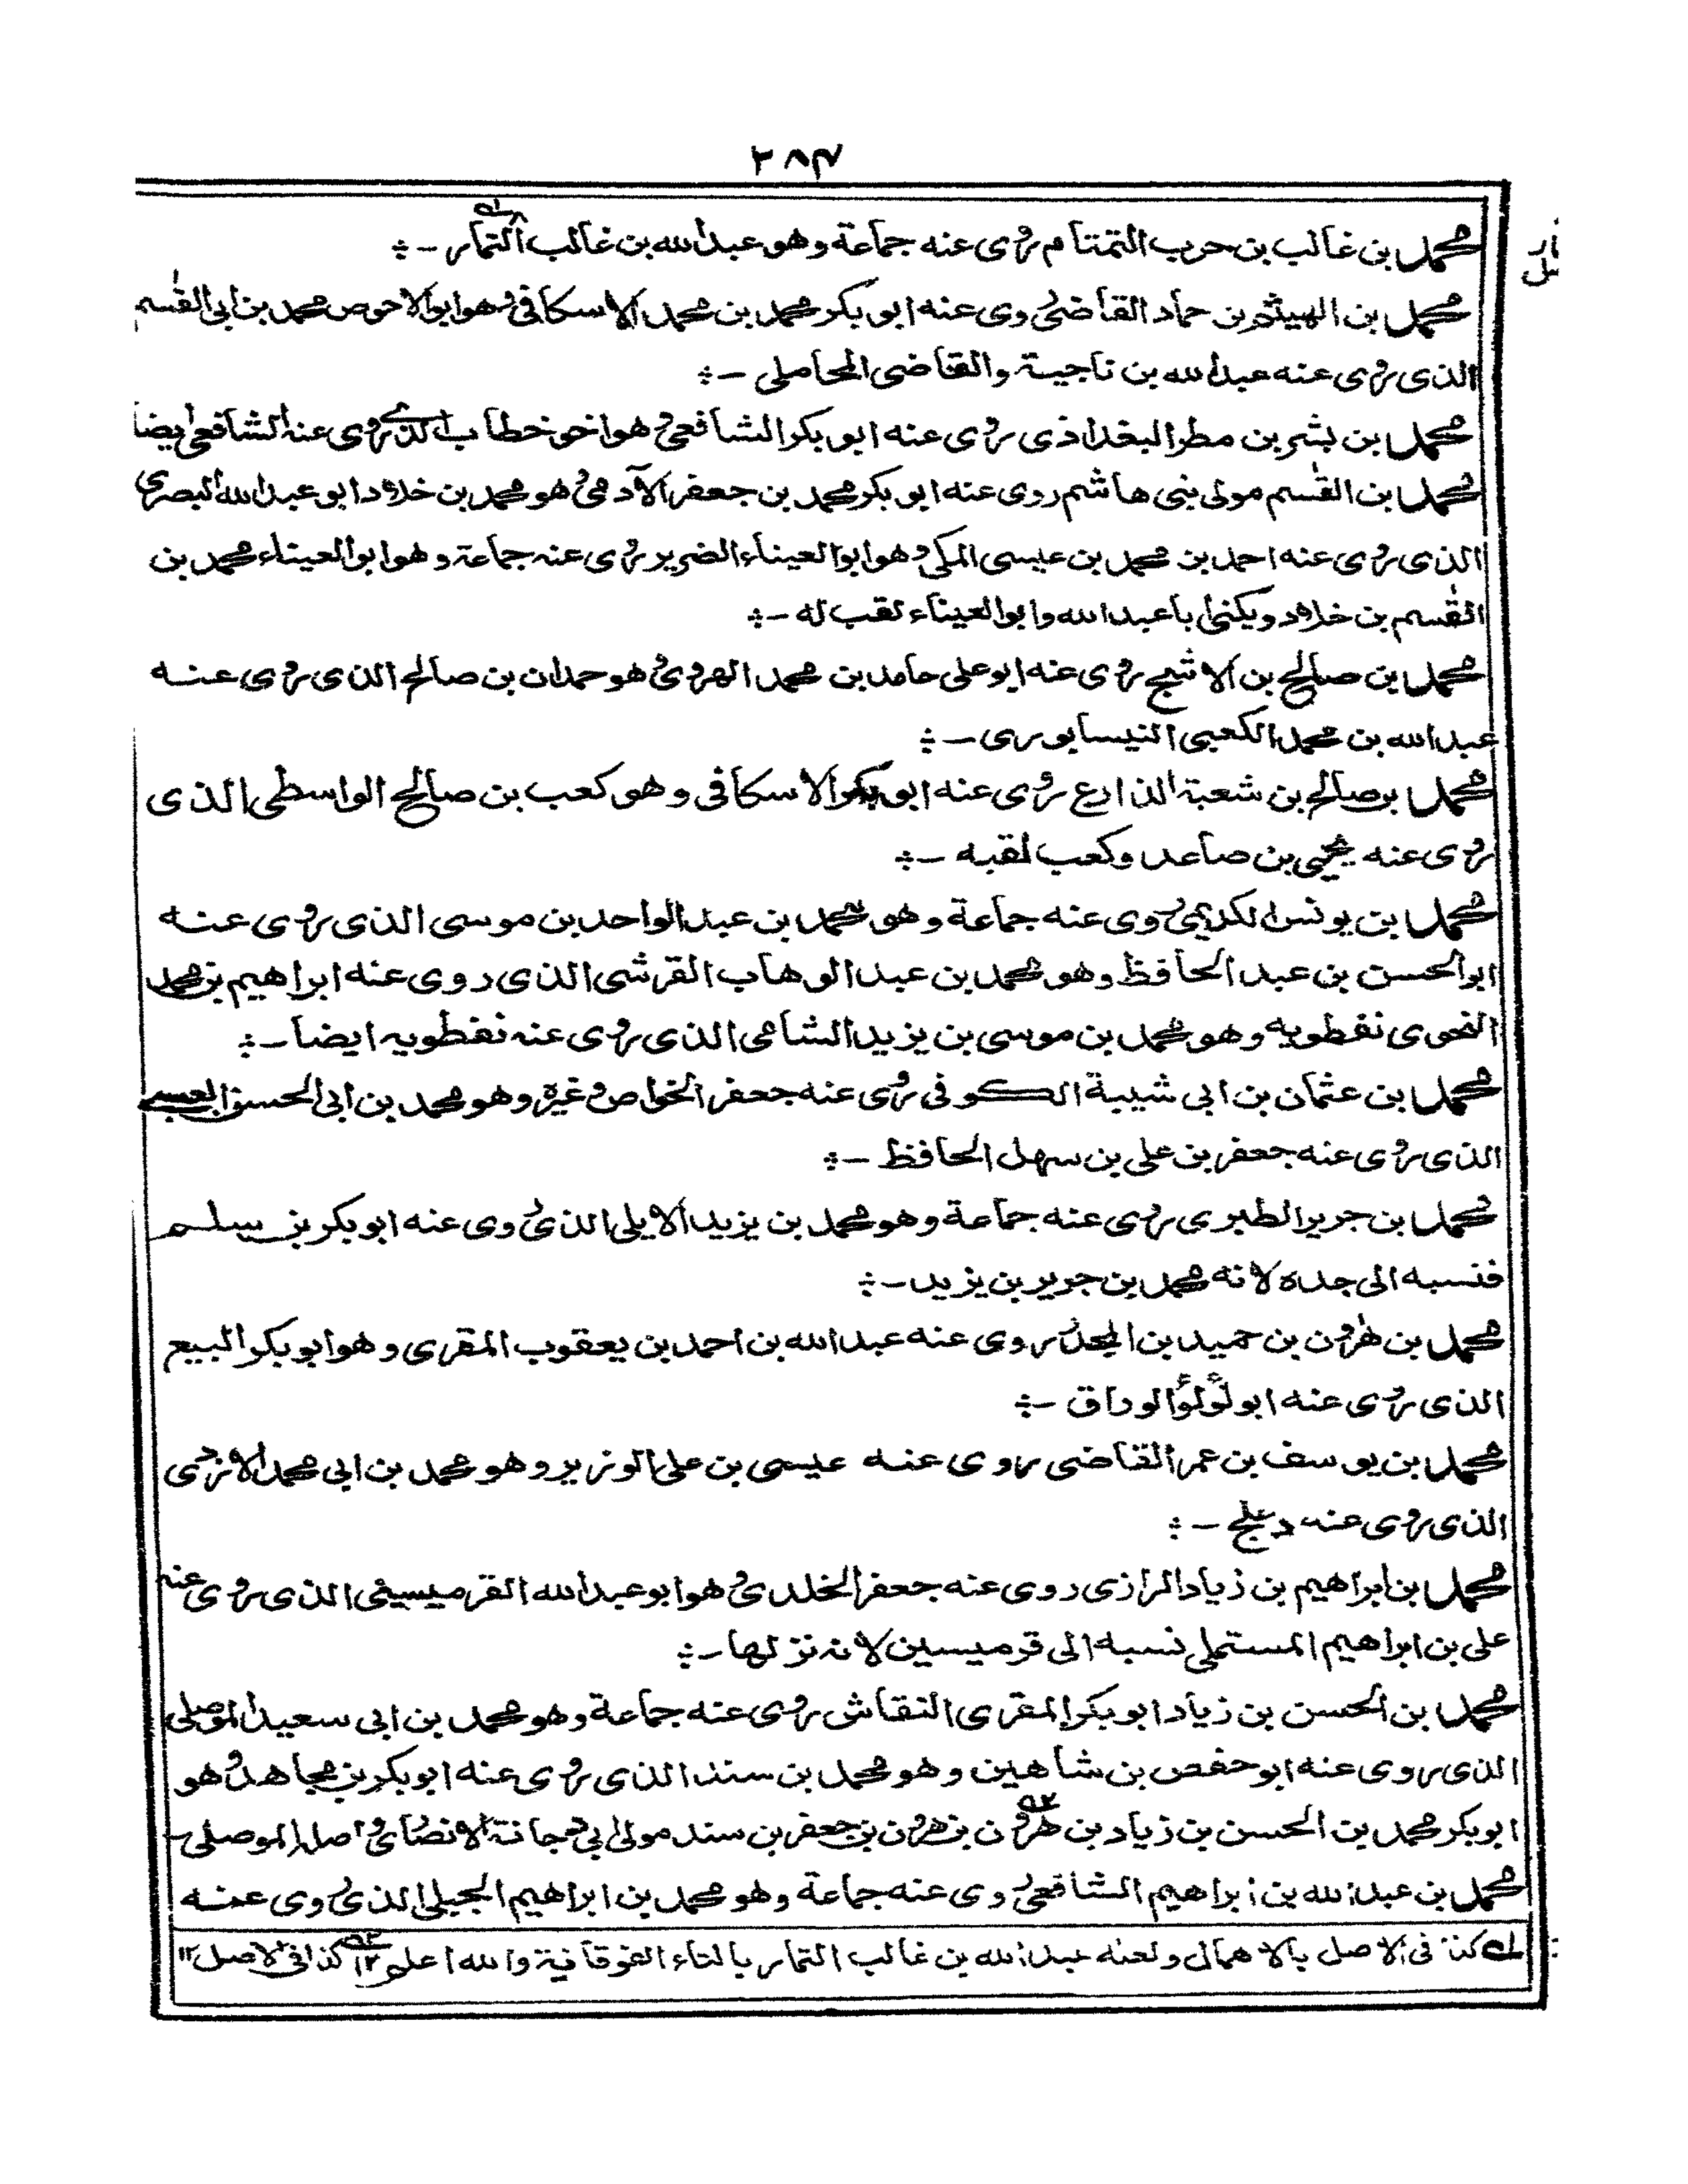 ٢٨٤
محمد بن غالب بن حرب التمتام روى عنه جماعة وهو عبد الله بن غالب التمار -
محمد بن الهيثم بن حماد القاضى روى عنه ابو بكر محمد بن محمد الاسكافى وهو ابو الاحوص محمد بن ابى القسم
الذى روى عنه عبد الله بن ناجية والقاضى المحاملى -
محمد بن بشر بن مطر البغداذى روى عنه ابو بكر الشافعى وهو اخو خطاب الذى روى عنه الشافعى ايضا
محمد بن القسم مولى بنى هاشم روى عنه ابو بكر محمد بن جعفر الآدمى وهو محمد بن خلاد ابو عبد الله البصرى
الذى روى عنه احمد بن محمد بن عيسى المكى وهو ابو العيناء الضرير روى عنه جماعة وهو ابو العيناء محمد بن
القسم بن خلاد ويكنى با عبد الله وابو العيناء لقب له -
محمد بن صالح بن الاشج روى عنه ابو على حامد بن محمد الهروى وهو حمدان بن صالح الذى روى عنه
عبد الله بن محمد الكعبى النيسابورى -
محمد بن صالح بن شعبة الذارع روى عنه ابو بكر الاسكافى وهو كعب بن صالح الواسطى الذى
روى عنه يحيى بن صاعد وكعب لقبه -
محمد بن يونس الكديمى روى عنه جماعة وهو محمد بن عبد الواحد بن موسى الذى روى عنه
ابو الحسن بن عبد الحافظ وهو محمد بن عبد الوهاب القرشى الذى روى عنه ابراهيم بن محمد
النحوى نفطويه وهو محمد بن موسى بن يزيد الشامى الذى روى عنه نفطويه ايضا -
محمد بن عثمان بن ابى شيبة الكوفى روى عنه جعفر الخواص وغيره وهو محمد بن ابى الحسن العبسى
الذى روى عنه جعفر بن على بن سهل الحافظ -
محمد بن جرير الطبرى روى عنه جماعة وهو محمد بن يزيد الايلى الذى روى عنه ابو بكر بن سلم
فنسبه الى جده لانه محمد بن جرير بن يزيد -
محمد بن هرون بن حميد بن المجدر روى عنه عبد الله بن احمد بن يعقوب المقرى وهو ابو بكر البيع
الذى روى عنه ابو لؤلؤ الوراق -
محمد بن يوسف بن عمر القاضى روى عنه عيسى بن على الوزير وهو محمد بن ابى محمد الازدى
الذى روى عنه دعلج -
محمد بن ابراهيم بن زياد الرازى روى عنه جعفر الخلدى وهو ابو عبد الله القرميسينى الذى روى عنه
على بن ابراهيم المستملى نسبه الى قرميسين لانه نزلها -
محمد بن الحسن بن زياد ابو بكر المقرى النقاش روى عنه جماعة وهو محمد بن ابى سعيد الموصلى
الذى روى عنه ابو حفص بن شاهين وهو محمد بن سند الذى روى عنه ابو بكر بن مجاهد وهو
ابو بكر محمد بن الحسن بن زياد بن هرون بن هرون بن جعفر بن سند مولى ابى دجانة الانصارى واصله الموصلى -
محمد بن عبد الله بن ابراهيم الشافعى روى عنه جماعة وهو محمد بن ابراهيم الجبلى الذى روى عنه
له كذا فى الاصل بالاهمال ولعله عبد الله بن غالب التمار بالتاء الفوقانية والله اعلم ١٢ كذا فى الاصل ١٢